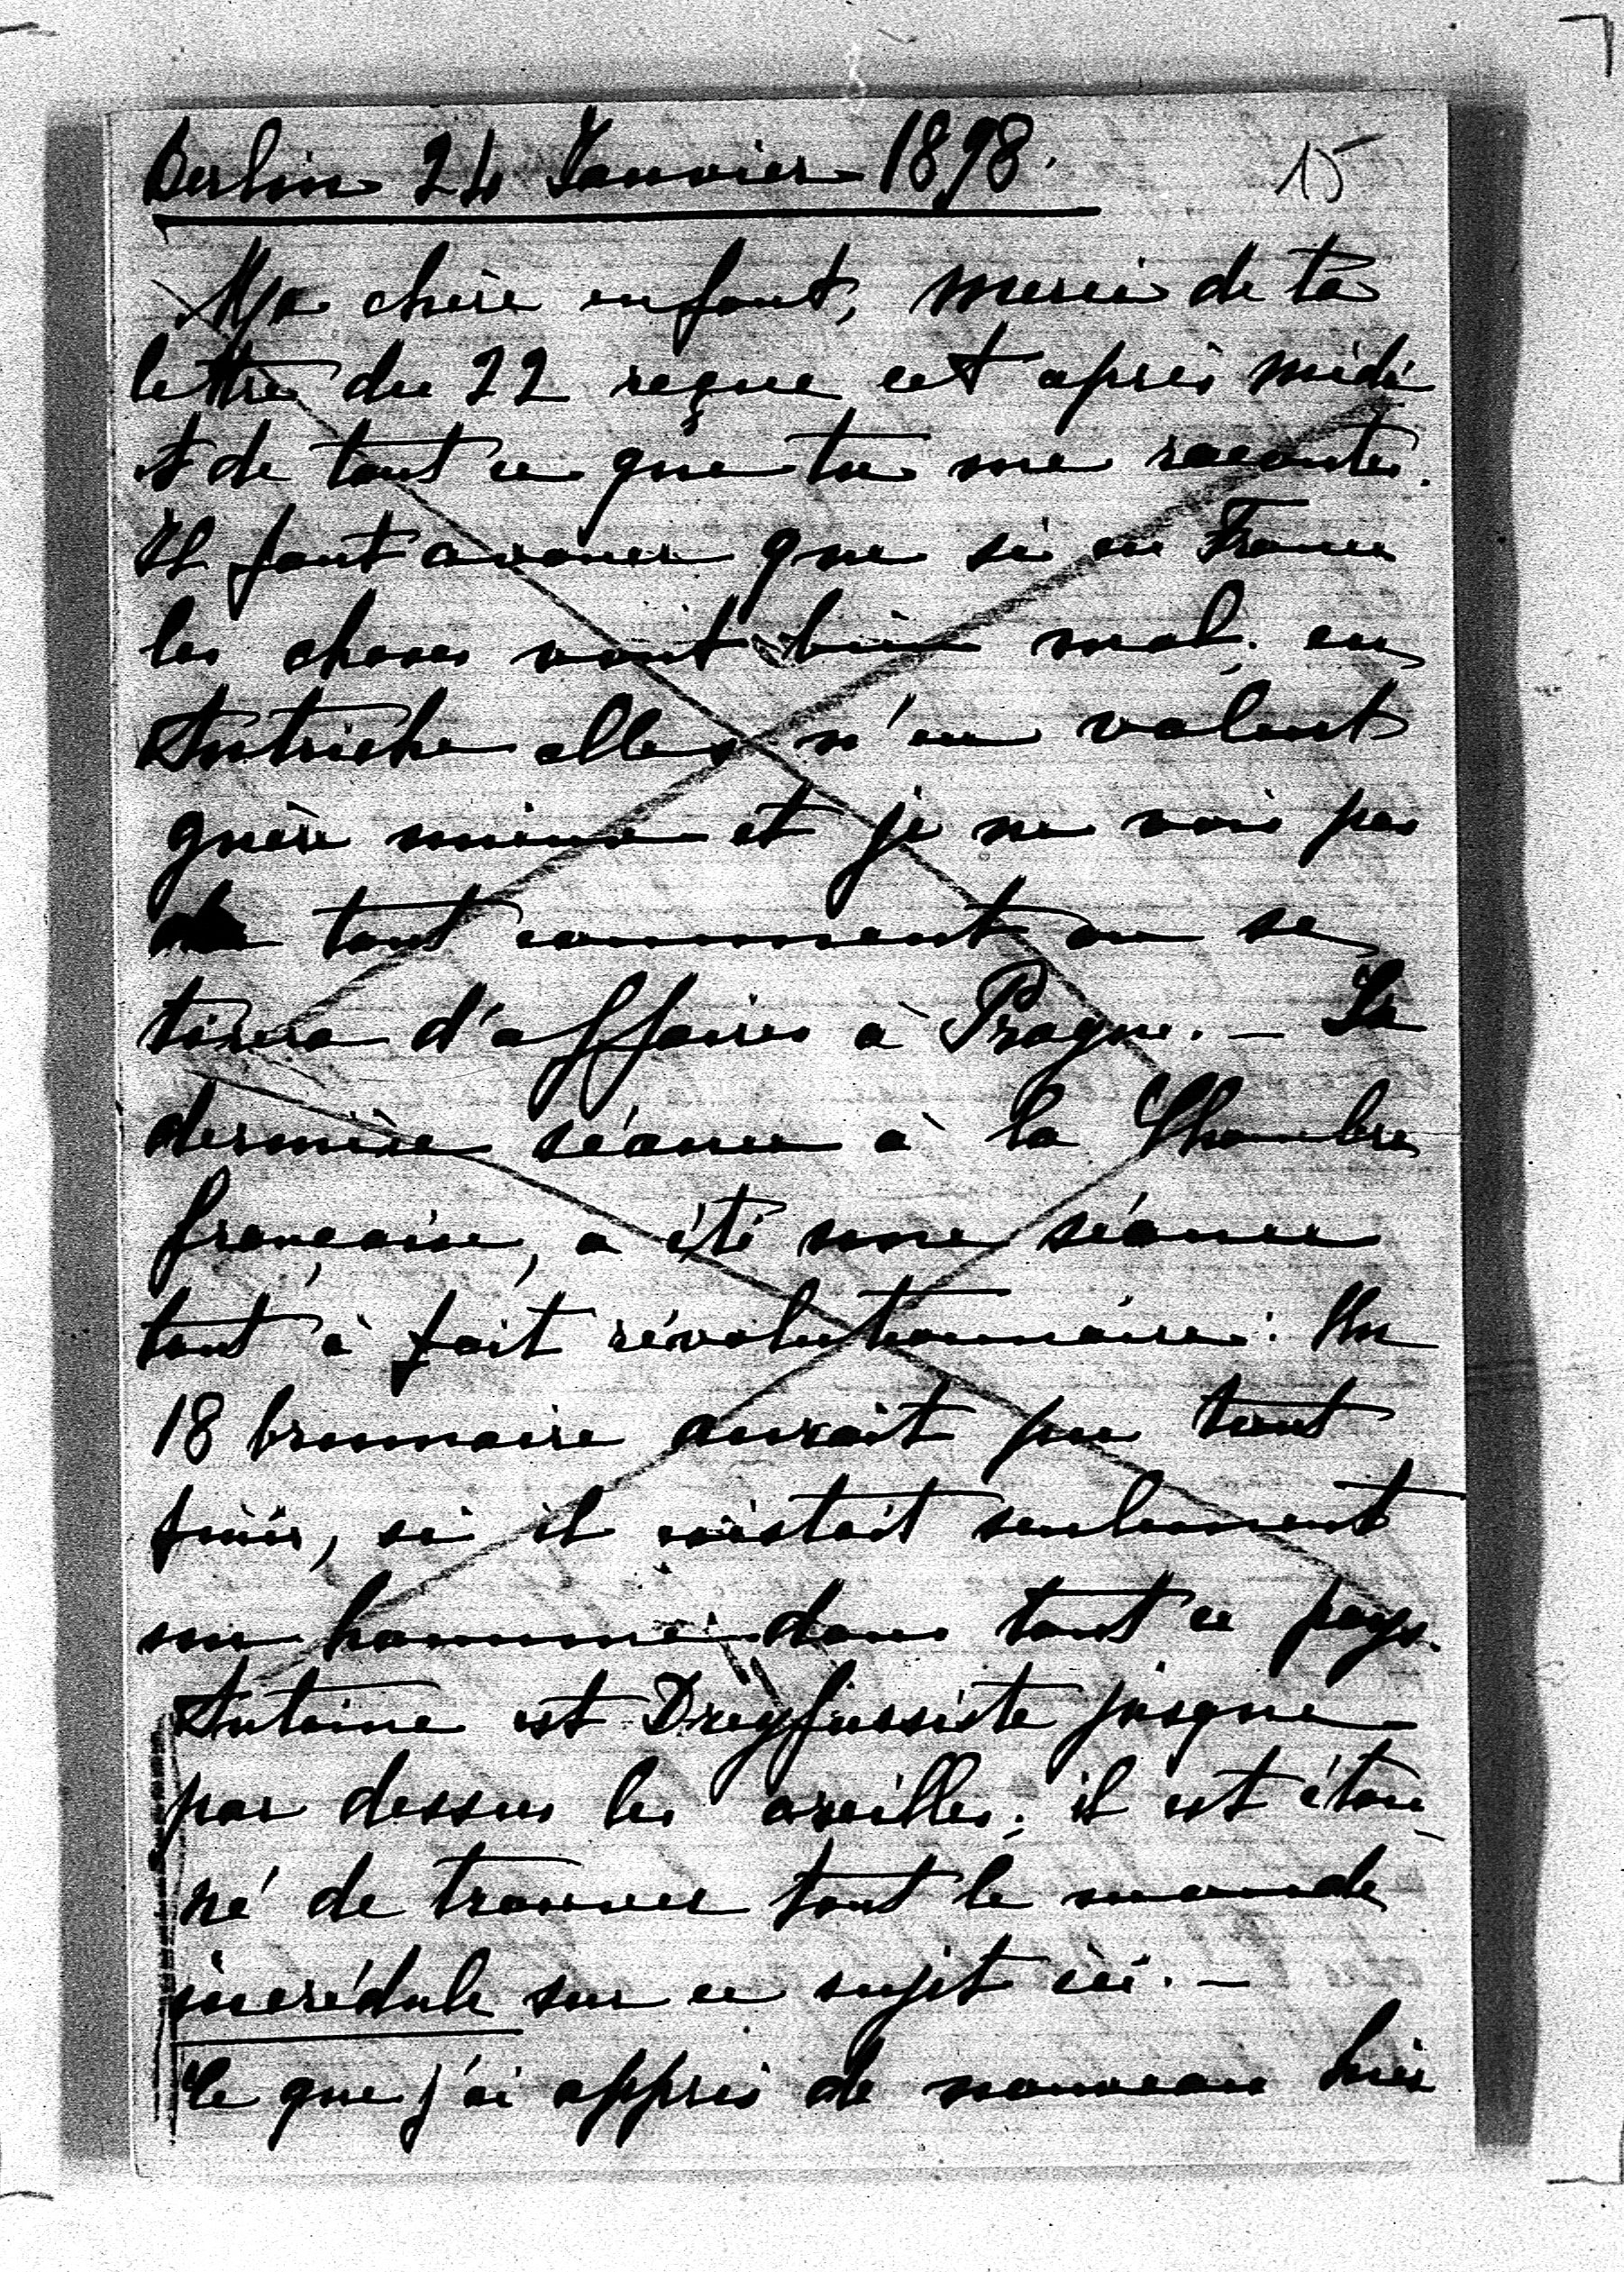 Berlin 24 Janvier 1898.
15
Ma chère enfant, merci de ta
lettre du 22 reçue cet après midi
et de tout ce que tu me racontes.
Il faut avouer que si en France
les choses vont bien mal, en
Autriche elles n'en valent
guère mieux et je ne vois pas
du tout comment on se
tirera d'affaires à Prague. — La
dernière séance à la Chambre
française, a été une séance
tout à fait révolutionnaire. Un
18 brumaire aurait pu tout
finir, si il existait seulement
un homme dans tout ce pays.
Antoine est Dreyfussiste jusque
par dessus les oreilles; il est éton-
né de trouver tout le monde
incrédule sur ce sujet ici. —
Ce que j'ai appris de nouveau hier